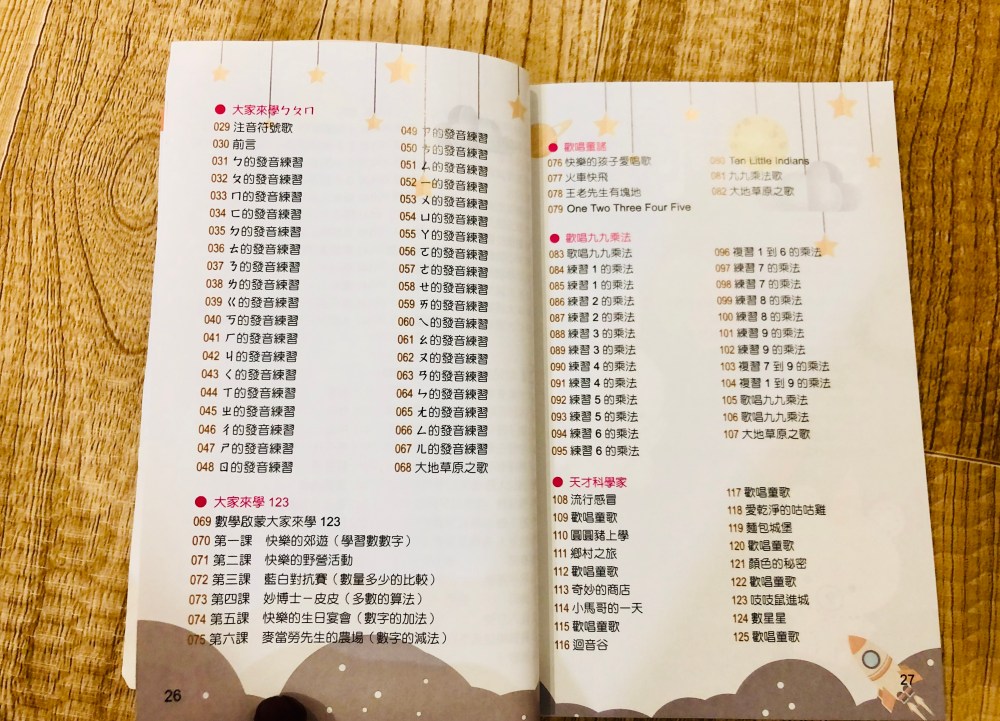 大家來學ㄅㄆㄇ
029 注音符號歌
030 前言
031 ㄅ的發音練習
032 ㄆ的發音練習
033 ㄇ的發音練習
034 ㄈ的發音練習
035 ㄉ的發音練習
036 ㄊ的發音練習
037 ㄋ的發音練習
038 ㄌ的發音練習
039 ㄍ的發音練習
040 ㄎ的發音練習
041 ㄏ的發音練習
042 ㄐ的發音練習
043 ㄑ的發音練習
044 ㄒ的發音練習
045 ㄓ的發音練習
046 ㄔ的發音練習
047 ㄕ的發音練習
048 ㄖ的發音練習
049 ㄗ的發音練習
050 ㄘ的發音練習
051 ㄙ的發音練習
052 ㄧ的發音練習
053 ㄨ的發音練習
054 ㄩ的發音練習
055 ㄚ的發音練習
056 ㄛ的發音練習
057 ㄜ的發音練習
058 ㄝ的發音練習
059 ㄞ的發音練習
060 ㄟ的發音練習
061 ㄠ的發音練習
062 ㄡ的發音練習
063 ㄢ的發音練習
064 ㄣ的發音練習
065 ㄤ的發音練習
066 ㄥ的發音練習
067 ㄦ的發音練習
068 大地草原之歌
大家來學 123
069 數學啟蒙大家來學 123
070 第一課 快樂的郊遊（學習數數字）
071 第二課 快樂的野營活動
072 第三課 藍白對抗賽（數量多少的比較）
073 第四課 妙博士－皮皮（多數的算法）
074 第五課 快樂的生日宴會（數字的加法）
075 第六課 麥當勞先生的農場（數字的減法）
26
歡唱童謠
076 快樂的孩子愛唱歌
077 火車快飛
078 王老先生有塊地
079 One Two Three Four Five
080 Ten Little Indians
081 九九乘法歌
082 大地草原之歌
歡唱九九乘法
083 歌唱九九乘法
084 練習 1 的乘法
085 練習 1 的乘法
086 練習 2 的乘法
087 練習 2 的乘法
088 練習 3 的乘法
089 練習 3 的乘法
090 練習 4 的乘法
091 練習 4 的乘法
092 練習 5 的乘法
093 練習 5 的乘法
094 練習 6 的乘法
095 練習 6 的乘法
096 複習 1 到 6 的乘法
097 練習 7 的乘法
098 練習 7 的乘法
099 練習 8 的乘法
100 練習 8 的乘法
101 練習 9 的乘法
102 練習 9 的乘法
103 複習 7 到 9 的乘法
104 複習 1 到 9 的乘法
105 歌唱九九乘法
106 歌唱九九乘法
107 大地草原之歌
天才科學家
108 流行感冒
109 歡唱童歌
110 圓圓豬上學
111 鄉村之旅
112 歡唱童歌
113 奇妙的商店
114 小馬哥的一天
115 歡唱童歌
116 迴音谷
117 歡唱童歌
118 愛乾淨的咕咕雞
119 麵包城堡
120 歡唱童歌
121 顏色的秘密
122 歡唱童歌
123 吱吱鼠進城
124 數星星
125 歡唱童歌
27